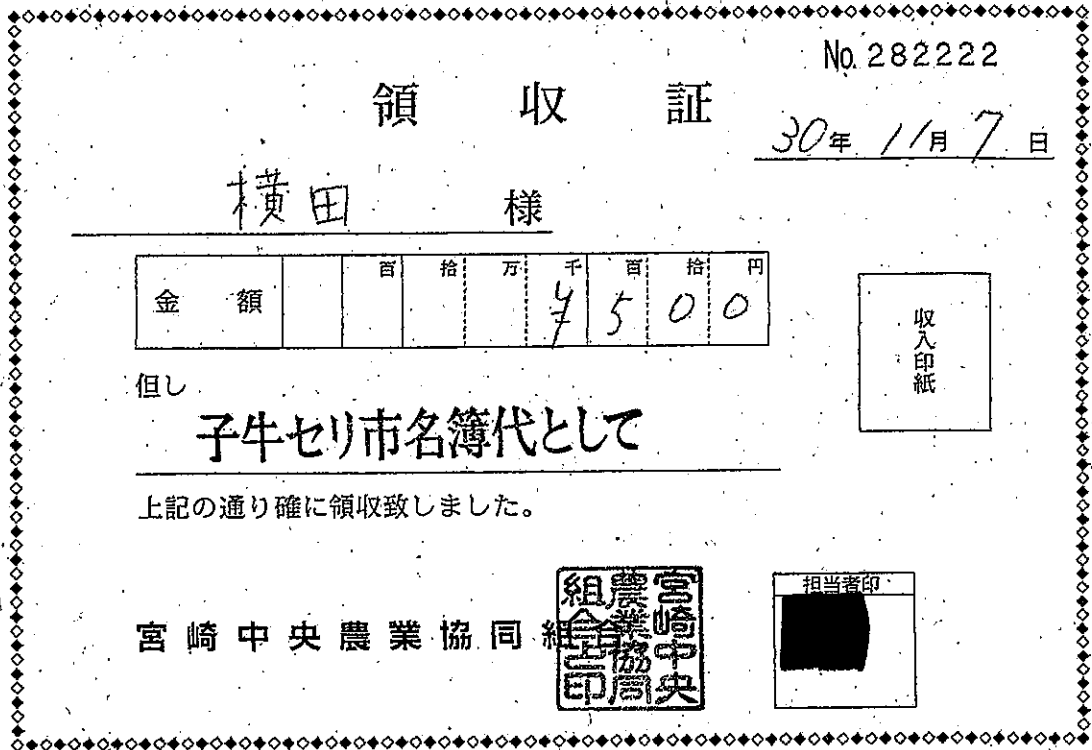 No. 282222
領収証
30年 11月 7日
横田 様
金額 百 拾 万 千 百 拾 円
¥500
収入印紙
但し
子牛セリ市名簿代として
上記の通り確に領収致しました。
宮崎中央農業協同組合
宮崎中央農業協同組合之印
担当者印